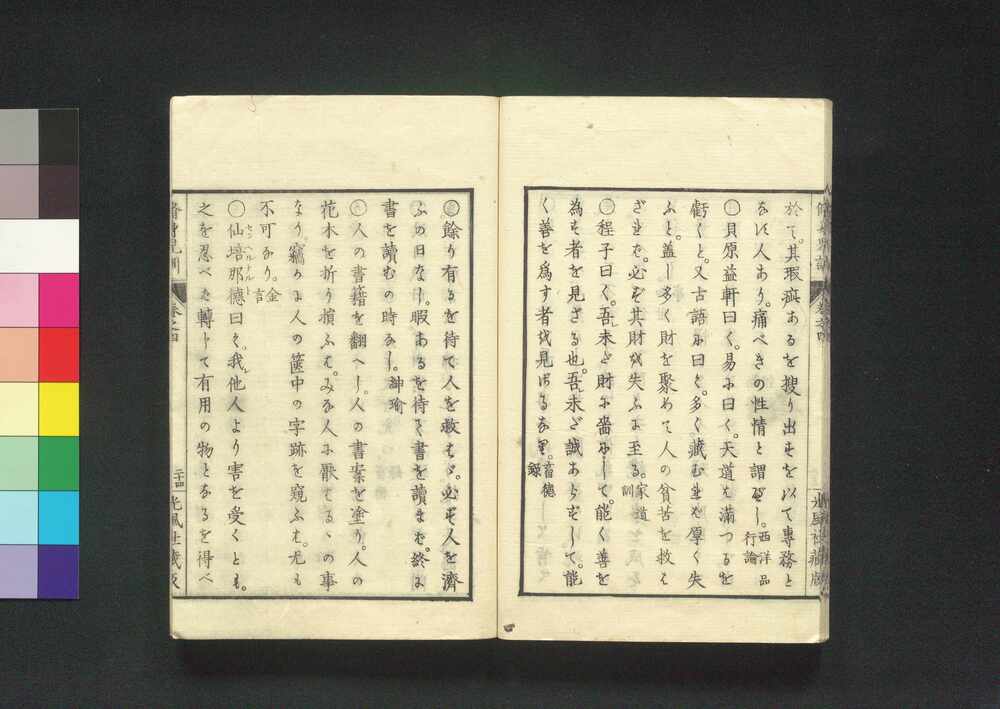 於て。其瑕疵あるを搜り出すを以て專務と
なす人あり。痛べきの性情と謂べし。西洋品行論
○貝原益軒曰く。易に曰く。天道は滿つるを
虧くと。又古語に曰く。多く藏むれば厚く失
ふと。蓋し多く財を聚めて人の貧苦を救は
ざれば。必ず其財を失ふに至る。家道訓
○程子曰く。吾未だ財に嗇にして。能く善を
為す者を見ざる也。吾未だ誠あらずして。能
く善を爲す者を見ざるなり。畜德錄
○餘り有るを待て人を救はゞ。必ず人を濟
ふの日なし。暇あるを待て書を讀まば。終に
書を讀むの時なし。紳瑜
○人の書籍を翻へし。人の書案を塗り。人の
花木を折り損ふは。みな人に厭はるゝの事
なり。竊かに人の篋中の字跡を窺ふは。尤も
不可なり。金言
○仙培那德曰く。我他人より害を受くとも。
セントベルナルド
之を忍べば轉じて有用の物となるを得べ
脩身兒訓
卷之四
二十四
光風社藏版